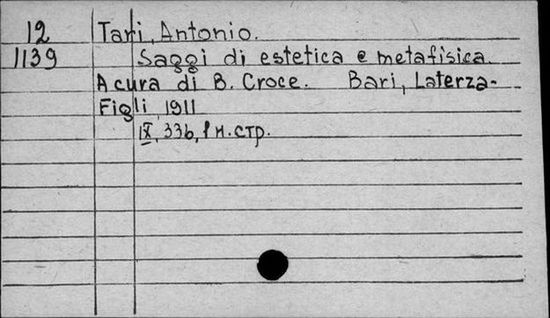 12 Tari, Antonio.
1139 Saggi di estetica e metafisica.
A cura di B. Croce. Bari, Laterza-
Figli, 1911
IX, 336, 1 н. стр.